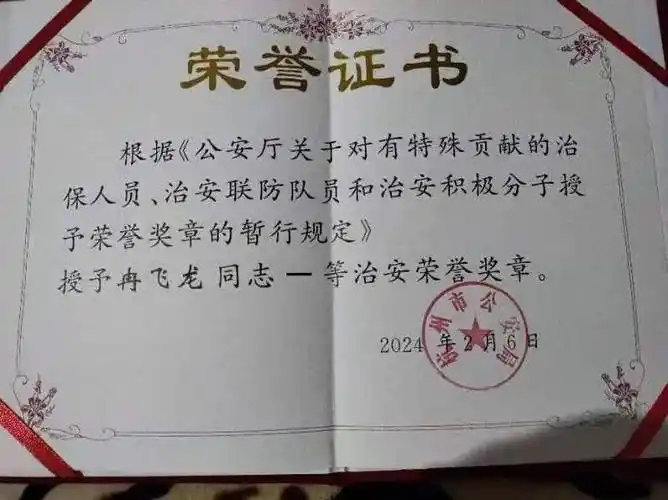 荣誉证书
根据《公安厅关于对有特殊贡献的治
保人员、治安联防队员和治安积极分子授
予荣誉奖章的暂行规定》
授予冉飞龙 同志 一 等治安荣誉奖章。
州市公安局
2024 年2月6日